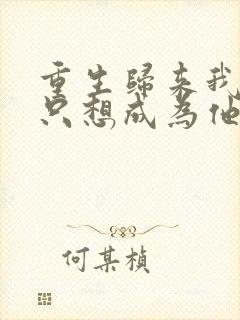 重生歸来我
只想成為他
何某楨